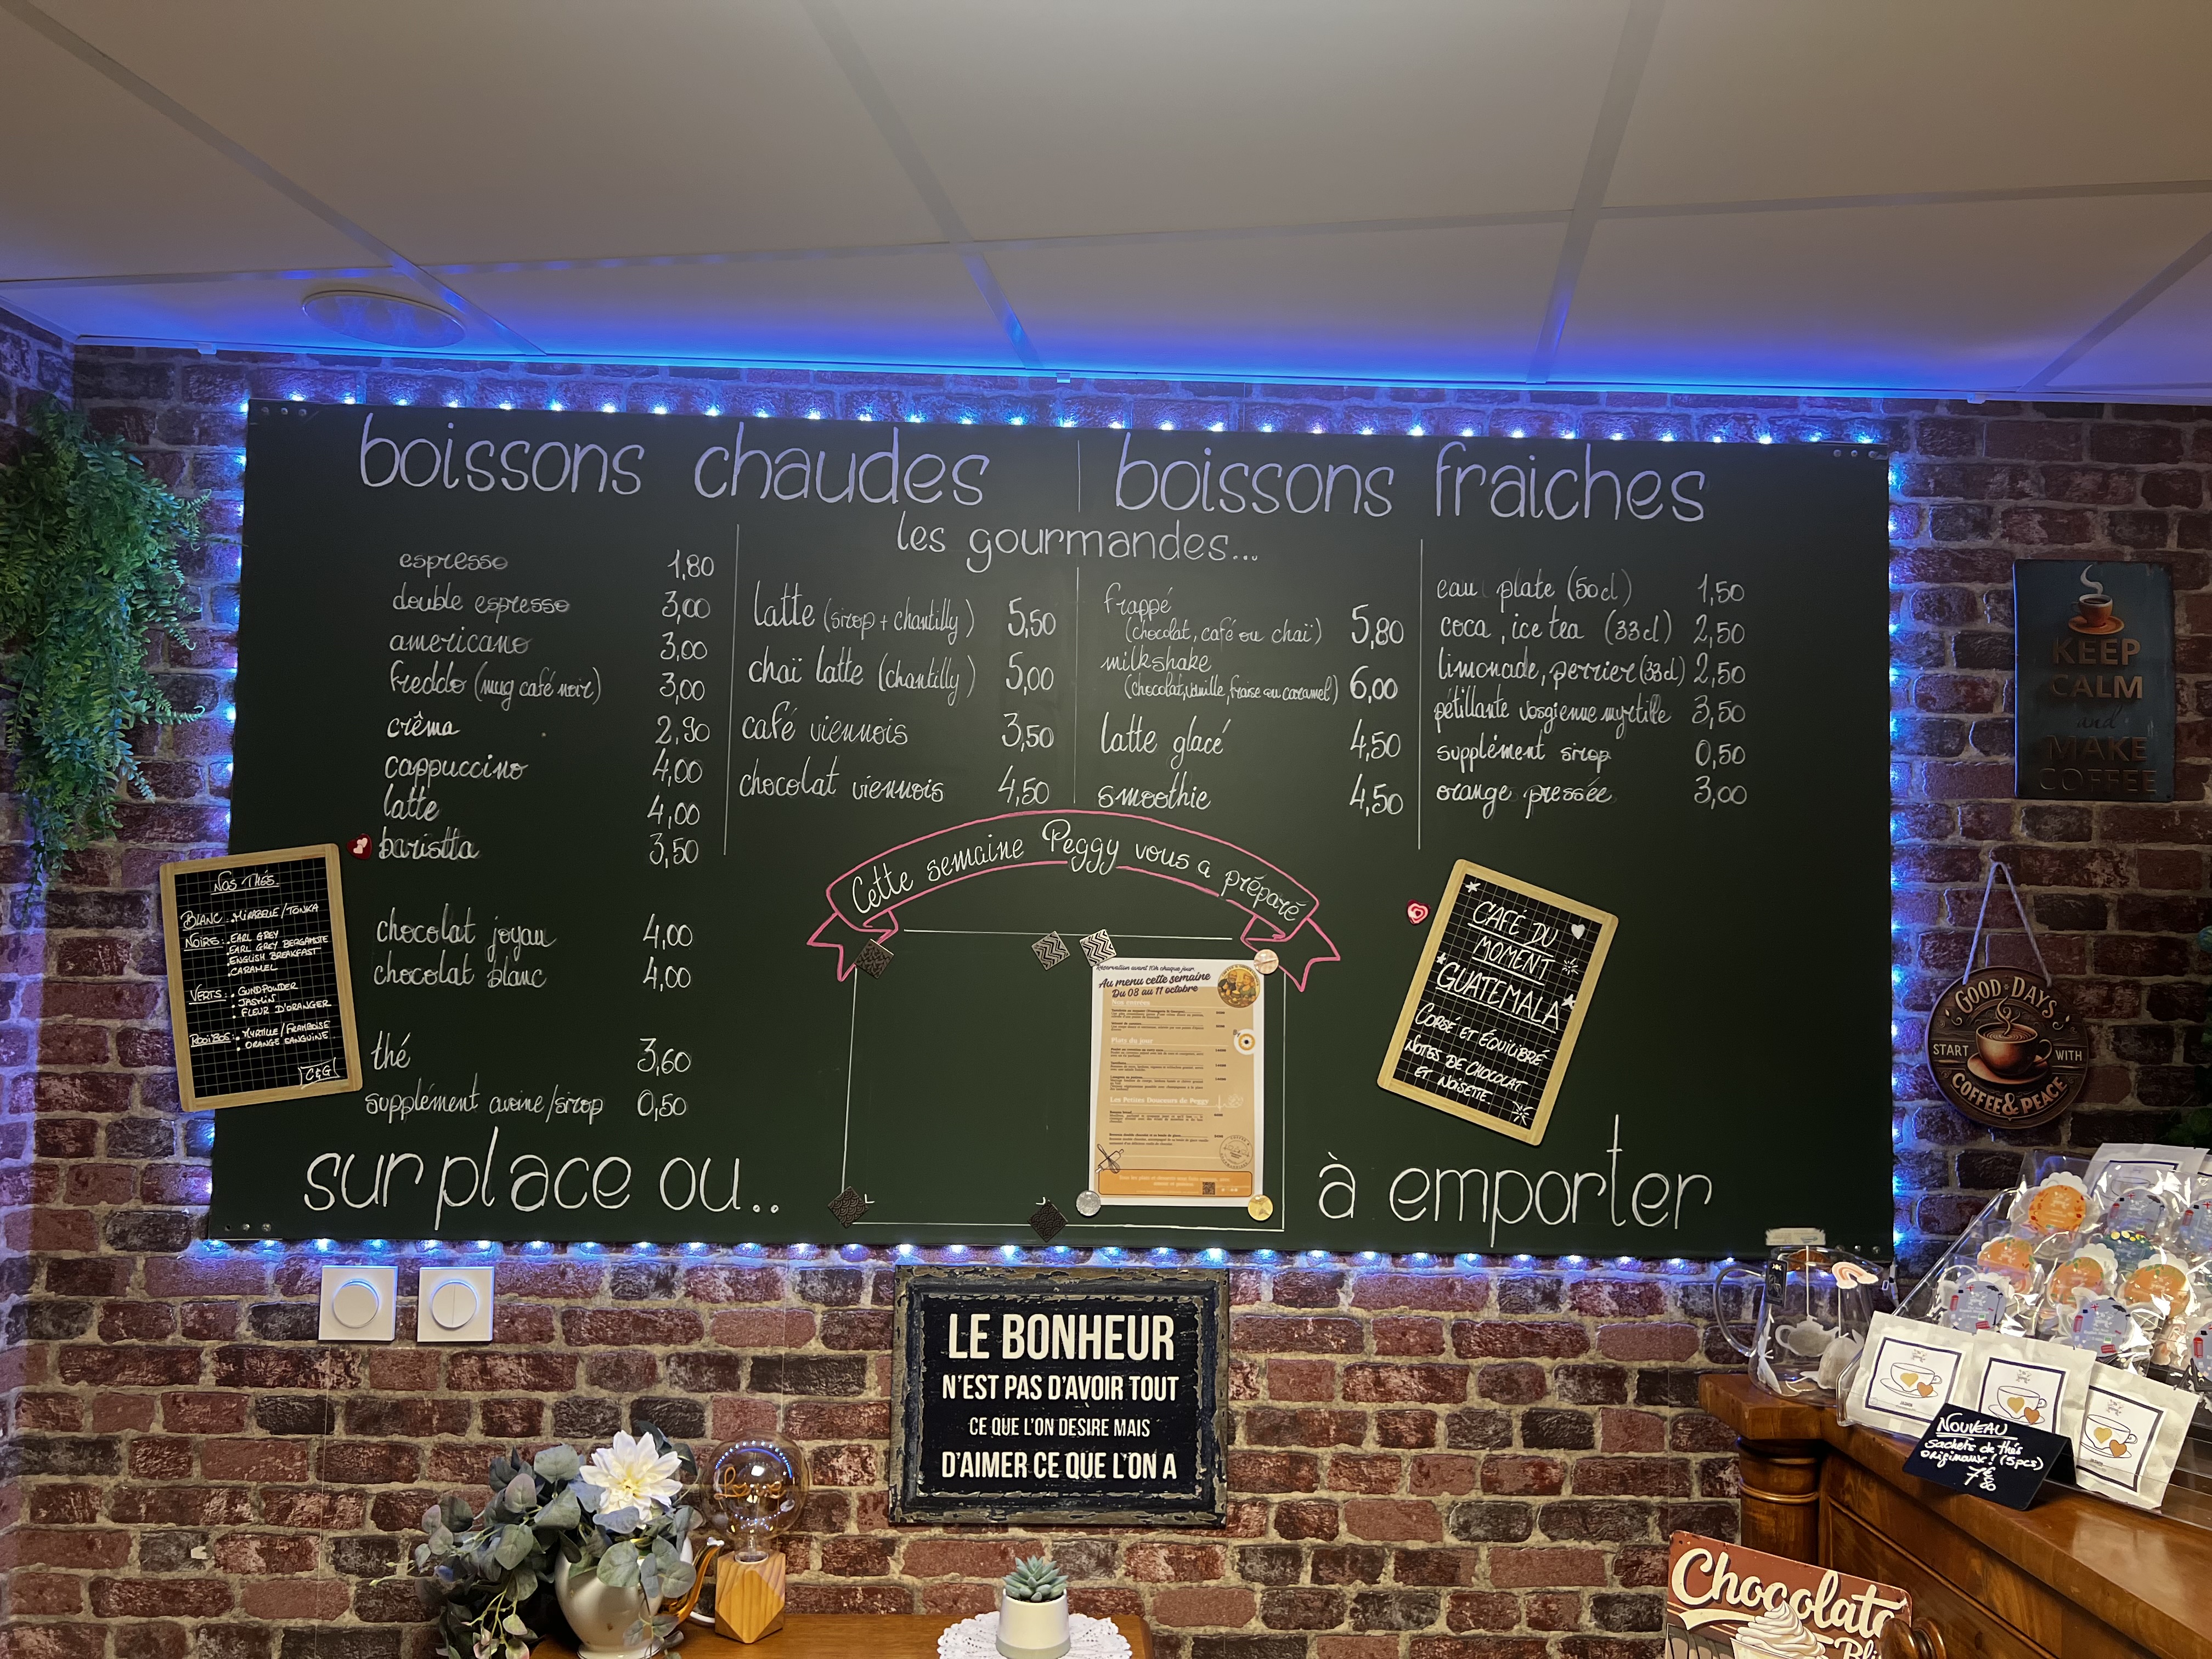 boissons chaudes
boissons fraiches
les gourmandes...
espresso 1,80
double espresso 3,00
americano 3,00
freddo (mug café noir) 3,00
crêma 2,90
cappuccino 4,00
latte 4,00
baristta 3,50
chocolat joyau 4,00
chocolat blanc 4,00
thé 3,60
supplément avoine/sirop 0,50
latte (sirop + chantilly) 5,50
chaï latte (chantilly) 5,00
café viennois 3,50
chocolat viennois 4,50
frappé
(chocolat, café ou chaï) 5,80
milkshake
(chocolat, vanille, fraise ou caramel) 6,00
latte glacé 4,50
smoothie 4,50
eau plate (50cl) 1,50
coca, ice tea (33cl) 2,50
limonade, perrier (33cl) 2,50
pétillante vosgienne myrtille 3,50
supplément sirop 0,50
orange pressée 3,00
Cette semaine Peggy vous a préparé
Réservation avant 10h chaque jour
Au menu cette semaine
Du 08 au 11 octobre
Nos entrées
Plats du jour
Les Petites Douceurs de Peggy
sur place ou..
à emporter
NOS THÉS
BLANC: . MIRABELLE/TONKA
NOIRS: . EARL GREY
. EARL GREY BERGAMOTE
. ENGLISH BREAKFAST
. CARAMEL
VERTS: . GUNPOWDER
. JASMIN
. FLEUR D'ORANGER
ROOÏBOS: . MYRTILLE/FRAMBOISE
. ORANGE SANGUINE
C&G
CAFÉ DU
MOMENT
GUATEMALA
CORSÉ ET ÉQUILIBRÉ
NOTES DE CHOCOLAT
ET NOISETTE.
KEEP
CALM
and
MAKE
COFFEE
GOOD DAYS
START WITH
COFFEE & PEACE
LE BONHEUR
N'EST PAS D'AVOIR TOUT
CE QUE L'ON DESIRE MAIS
D'AIMER CE QUE L'ON A
NOUVEAU
sachets de thés
originaux! (5pcs)
7€80
Chocolate